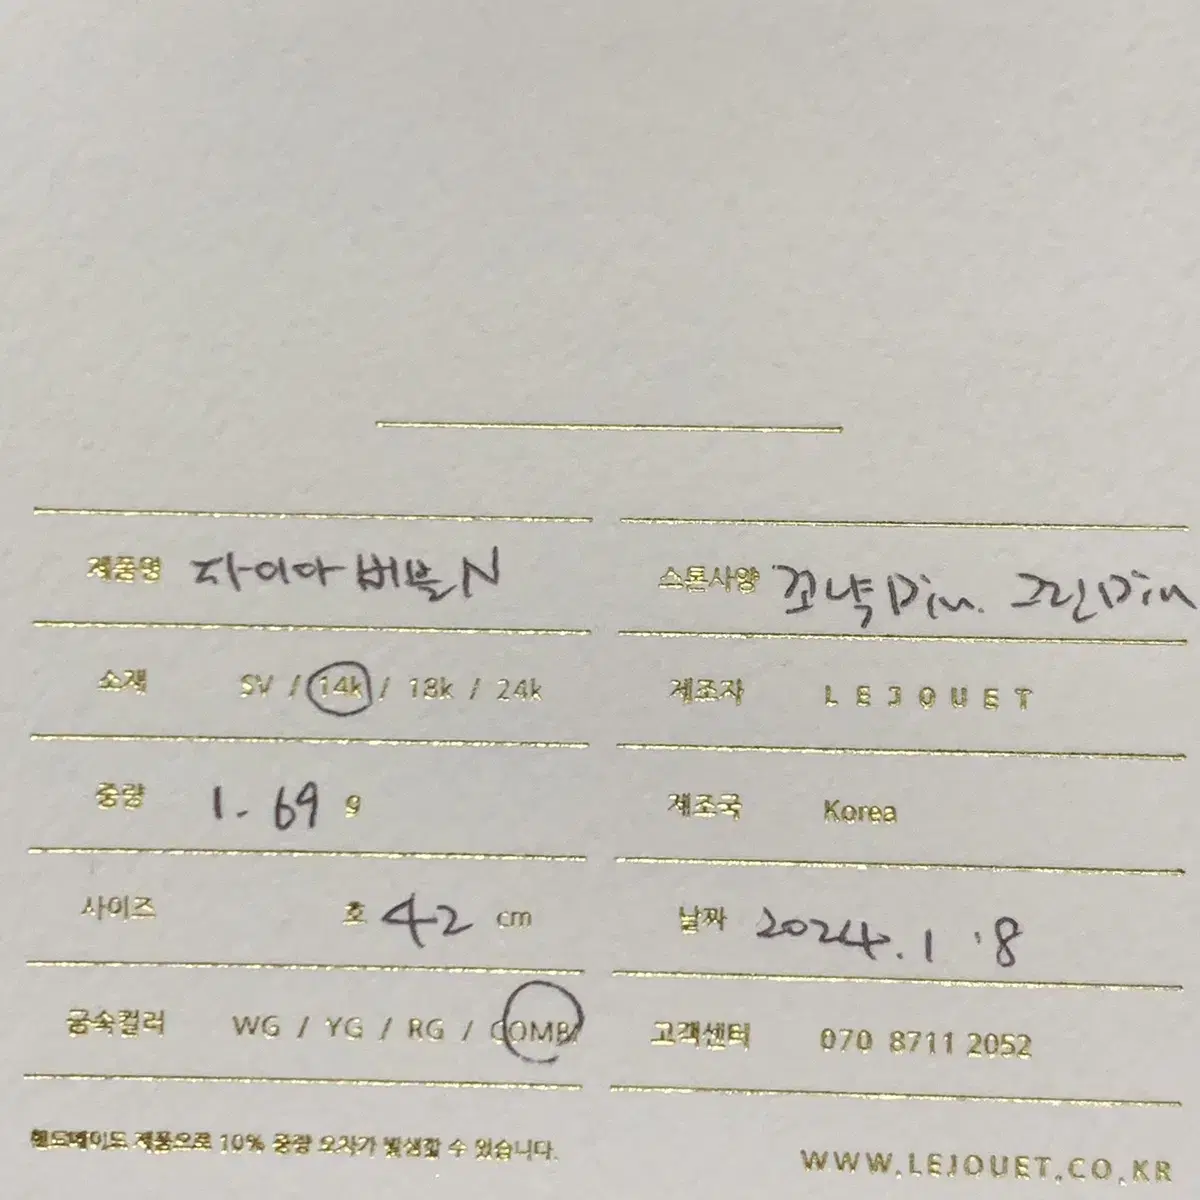 제품명 다이아 버블 N
소재 SV / 14k / 18k / 24k
중량 1.69 g
사이즈 호 42 cm
금속컬러 WG / YG / RG / COMBI
핸드메이드 제품으로 10% 중량 오차가 발생할 수 있습니다.
스톤사양 꼬냑 Dia. 그린 Dia
제조자 LEJOUET
제조국 Korea
날짜 2024. 1 .8
고객센터 070 8711 2052
WWW.LEJOUET.CO.KR